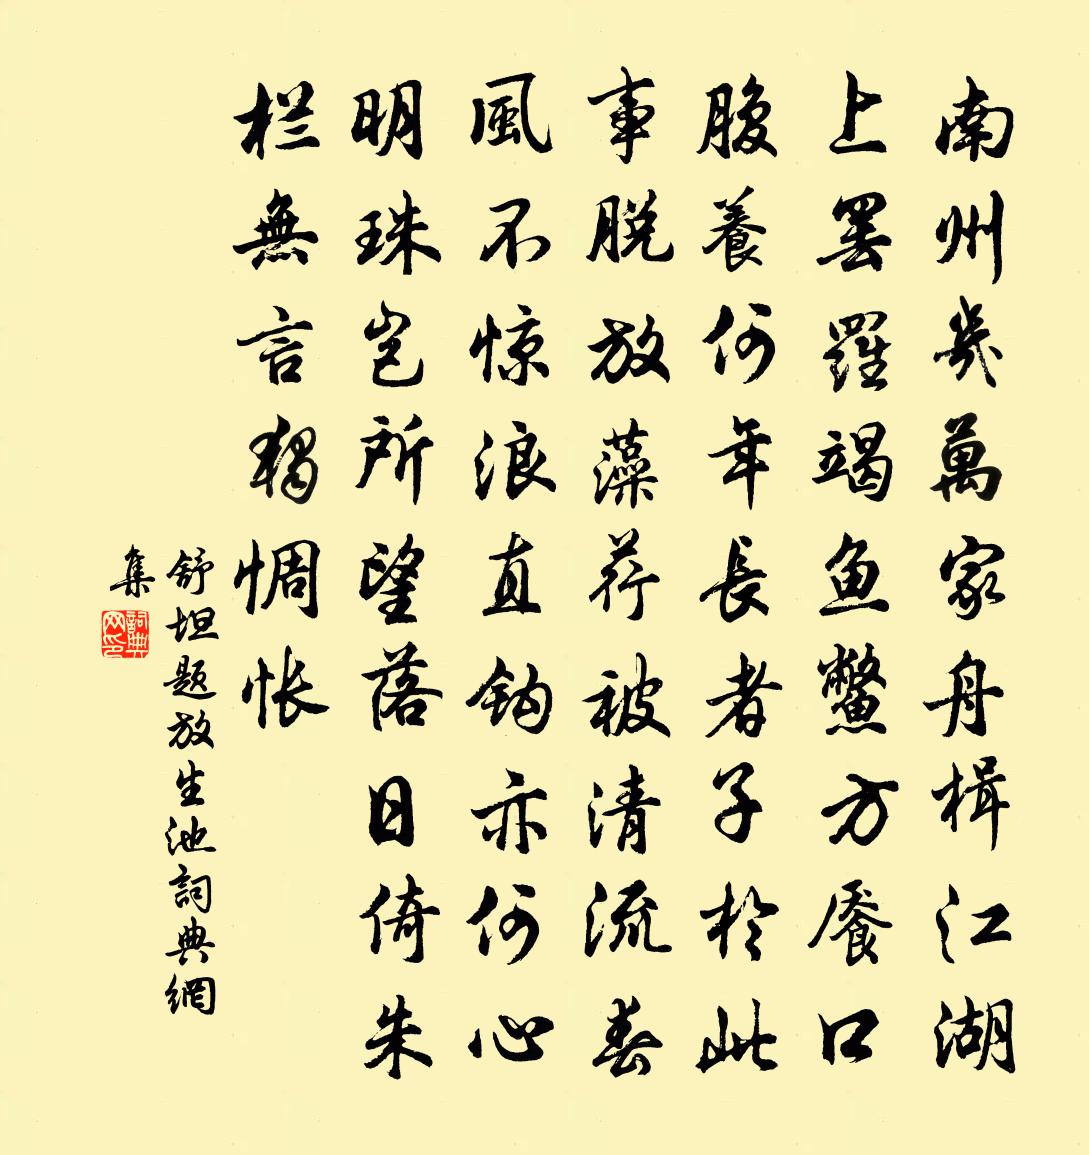 南州幾萬家舟楫江湖
上罢羅竭魚鱉方饜口
腹養何年長者子於此
事脱放藻荇被清流春
風不惊浪直鈎亦何心
明珠岂所望落日倚朱
栏無言獨惆怅
舒坦题放生池詞典網
集
詞典网印